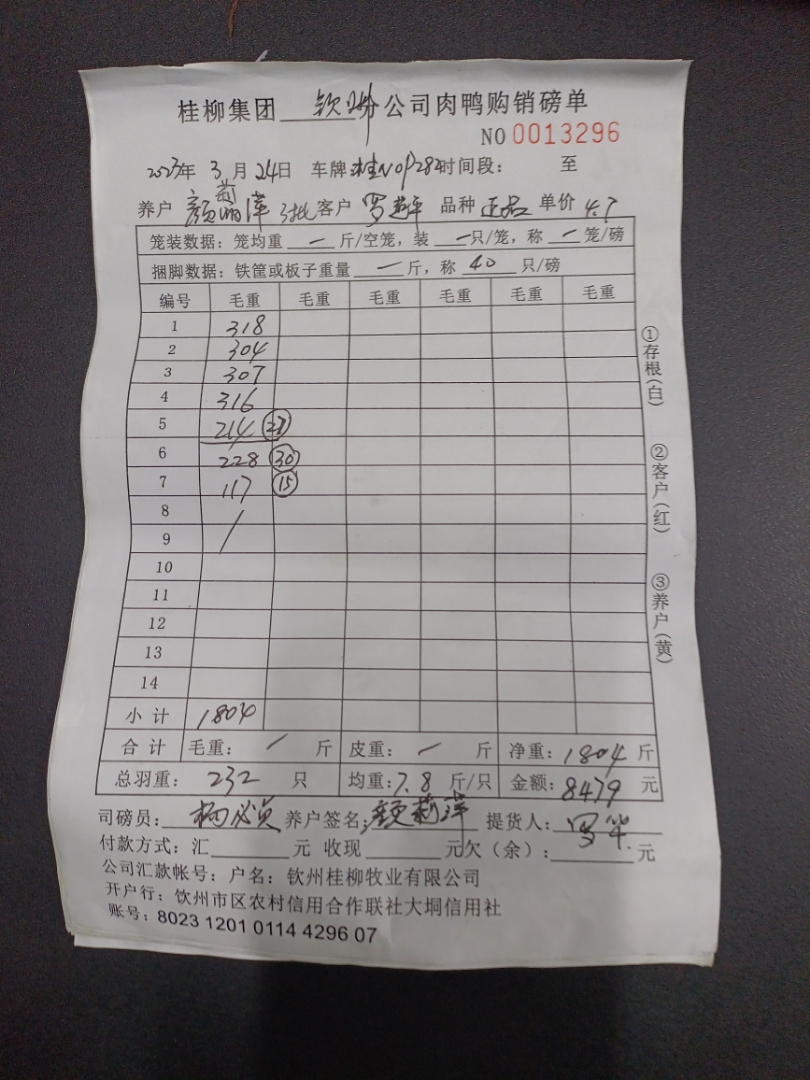 桂柳集团 钦州 公司肉鸭购销磅单
NO 0013296
2023年 3月24日 车牌:桂N0P282 时间段: 至
养户 颜莉萍 3批 客户 罗 品种 正品 单价 4.7
笼装数据:笼均重 — 斤/空笼,装 — 只/笼,称 — 笼/磅
捆脚数据:铁筐或板子重量 — 斤,称 40 只/磅
编号 毛重 毛重 毛重 毛重 毛重 毛重
1 318
2 304
3 307
4 316
5 214 27
6 228 30
7 117 15
8
9 /
10
11
12
13
14
小计 1804
合计 毛重: / 斤 皮重: — 斤 净重:1804 斤
总羽重: 232 只 均重:7.8 斤/只 金额:8479 元
司磅员: 养户签名:颜莉萍 提货人:罗
付款方式:汇 元 收现 元欠(余): 元
公司汇款帐号:户名:钦州桂柳牧业有限公司
开户行:饮州市区农村信用合作联社大垌信用社
账号:8023 1201 0114 4296 07
①存根(白)
②客户(红)
③养户(黄)